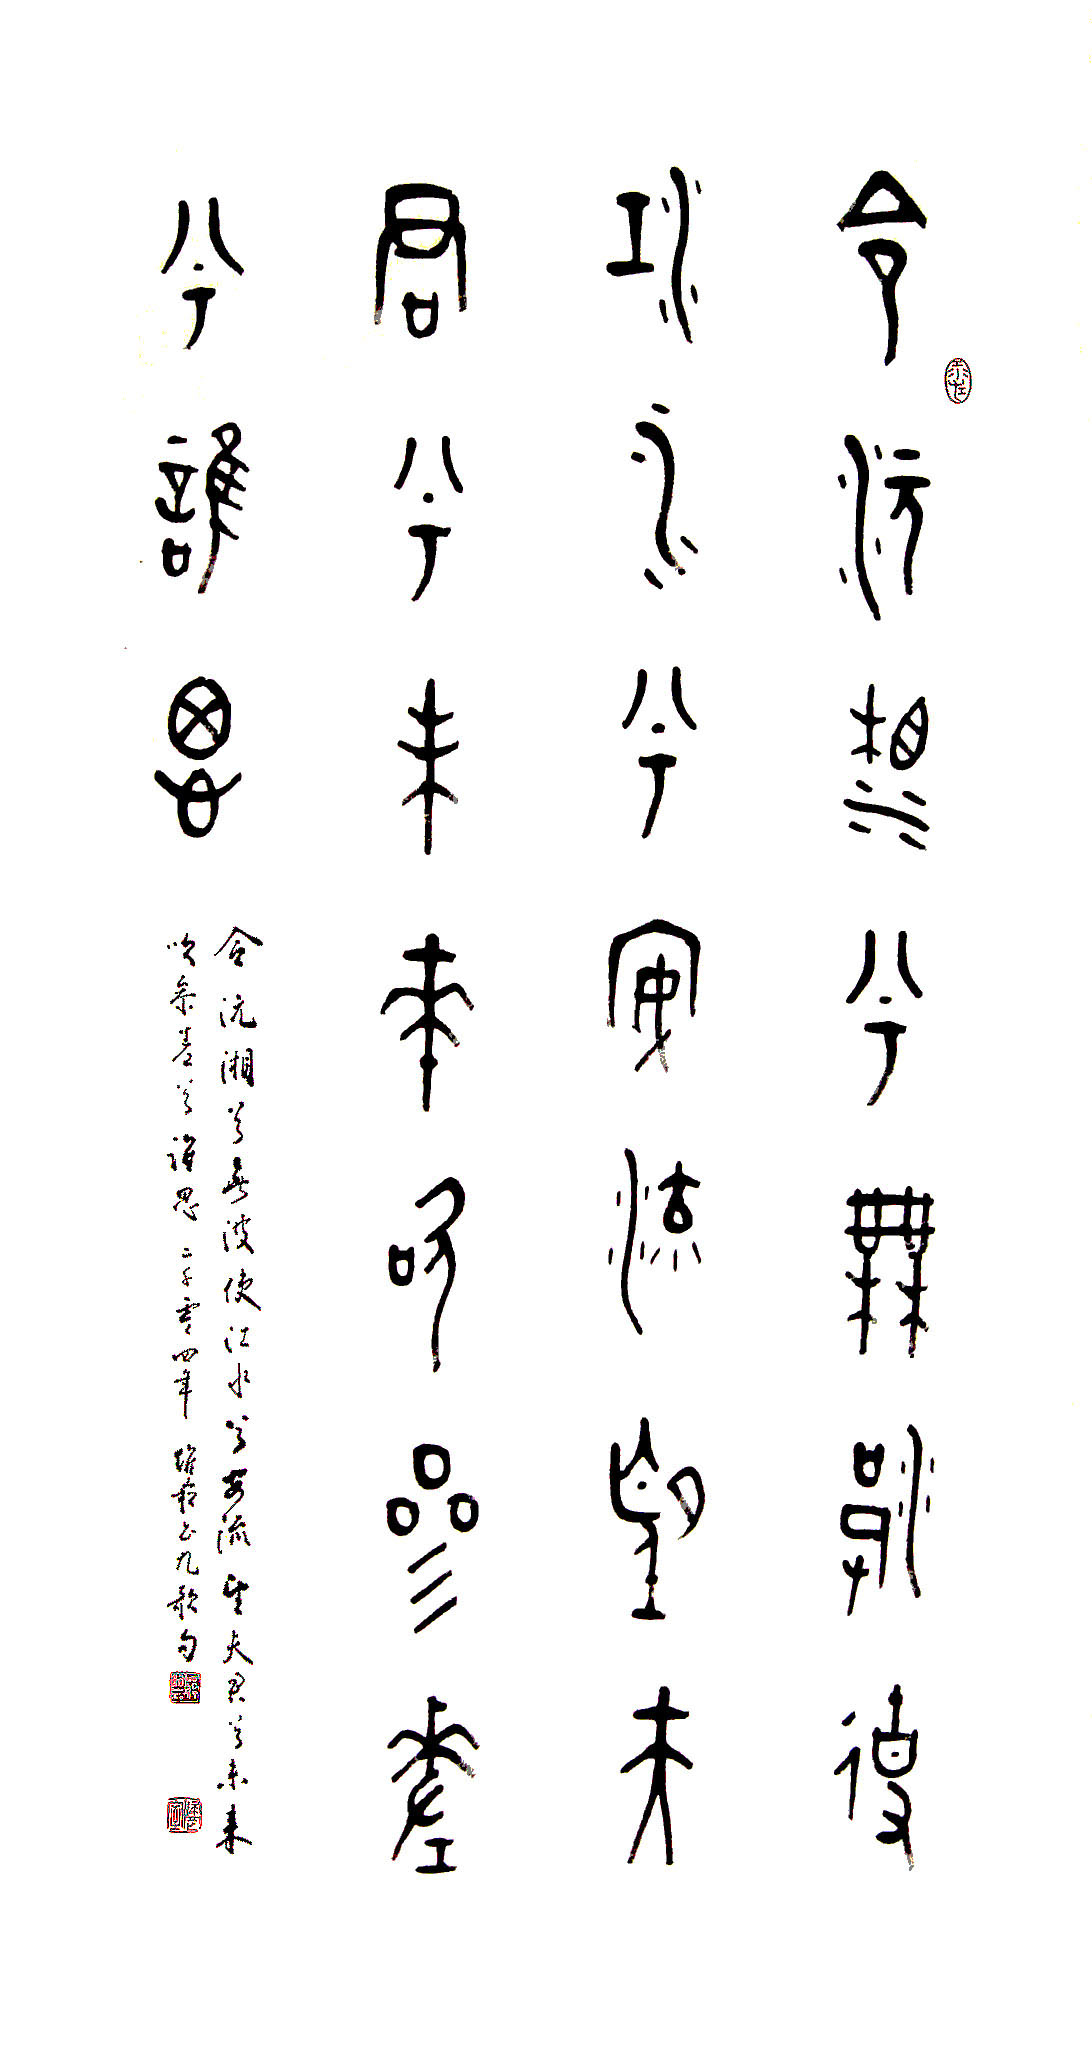 令沅湘兮無波使
江水兮安流望夫
君兮未來吹參差
兮誰思
令沅湘兮無波使江水兮安流望夫君兮未來
吹參差兮誰思 二千零四年 書九歌句